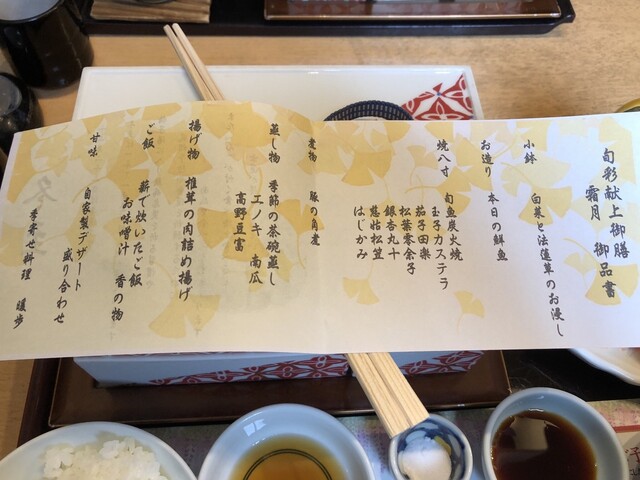 旬彩献上御膳
霜月 御品書
小鉢 白菜と法蓮草のお浸し
お造り 本日の鮮魚
焼八寸 旬魚炭火焼
玉子カステラ
茄子田楽
松葉零余子
銀杏丸十
慈姑松笠
はじかみ
煮物 豚の角煮
蒸し物 季節の茶碗蒸し
エノキ 南瓜
高野豆富
揚げ物 椎茸の肉詰め揚げ
ご飯 薪で炊いたご飯
お味噌汁 香の物
甘味 自家製デザート
盛り合わせ
季寄せ料理 暖歩